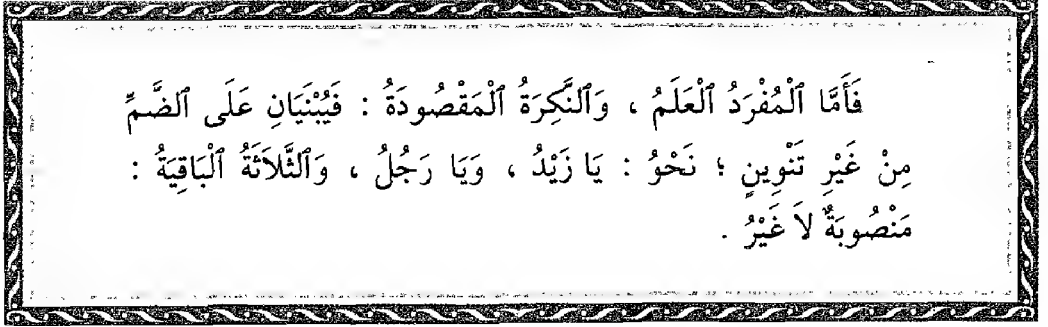 فَأَمَّا ٱلْمُفْرَدُ ٱلْعَلَمُ ، وَٱلنَّكِرَةُ ٱلْمَقْصُودَةُ : فَيُبْنَيَانِ عَلَى ٱلضَّمِّ
مِنْ غَيْرِ تَنْوِينٍ ؛ نَحْوُ : يَا زَيْدُ ، وَيَا رَجُلُ ، وَٱلثَّلَاثَةُ ٱلْبَاقِيَةُ :
مَنْصُوبَةٌ لاَ غَيْرُ .